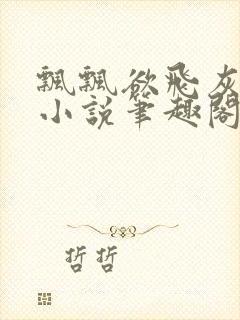 飄飄欲飛灰
小說筆趣閣
哲哲